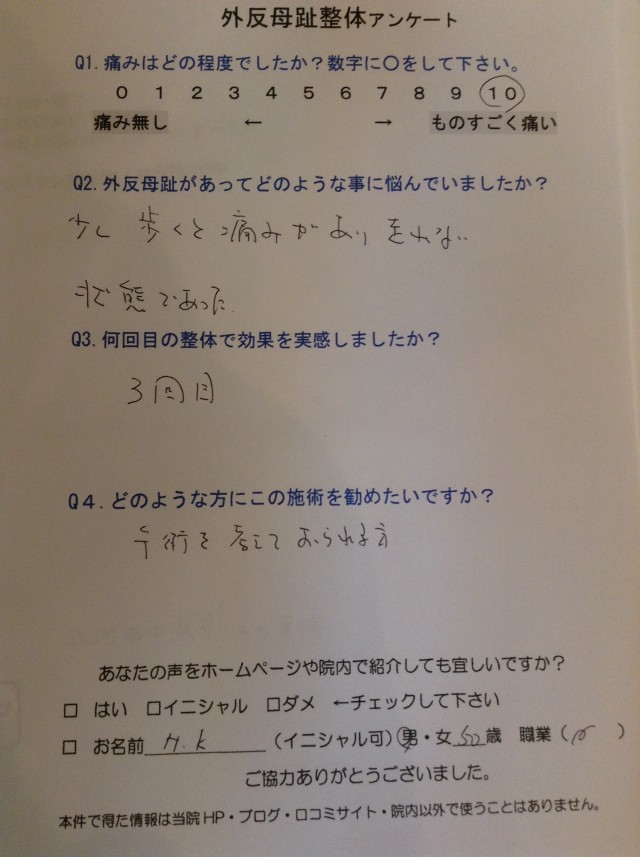 外反母趾整体アンケート
Q1.痛みはどの程度でしたか？数字に〇をして下さい。
0 1 2 3 4 5 6 7 8 9 10
痛み無し ← → ものすごく痛い
Q2.外反母趾があってどのような事に悩んでいましたか？
少し歩くと痛みがあり
状態であった.
Q3.何回目の整体で効果を実感しましたか？
3回目
Q4.どのような方にこの施術を勧めたいですか？
手術を考えておられる方
あなたの声をホームページや院内で紹介しても宜しいですか？
□ はい □イニシャル □ダメ ←チェックして下さい
□ お名前 H.K （イニシャル可）男・女 50歳 職業（ ）
ご協力ありがとうございました。
本件で得た情報は当院HP・ブログ・口コミサイト・院内以外で使うことはありません。